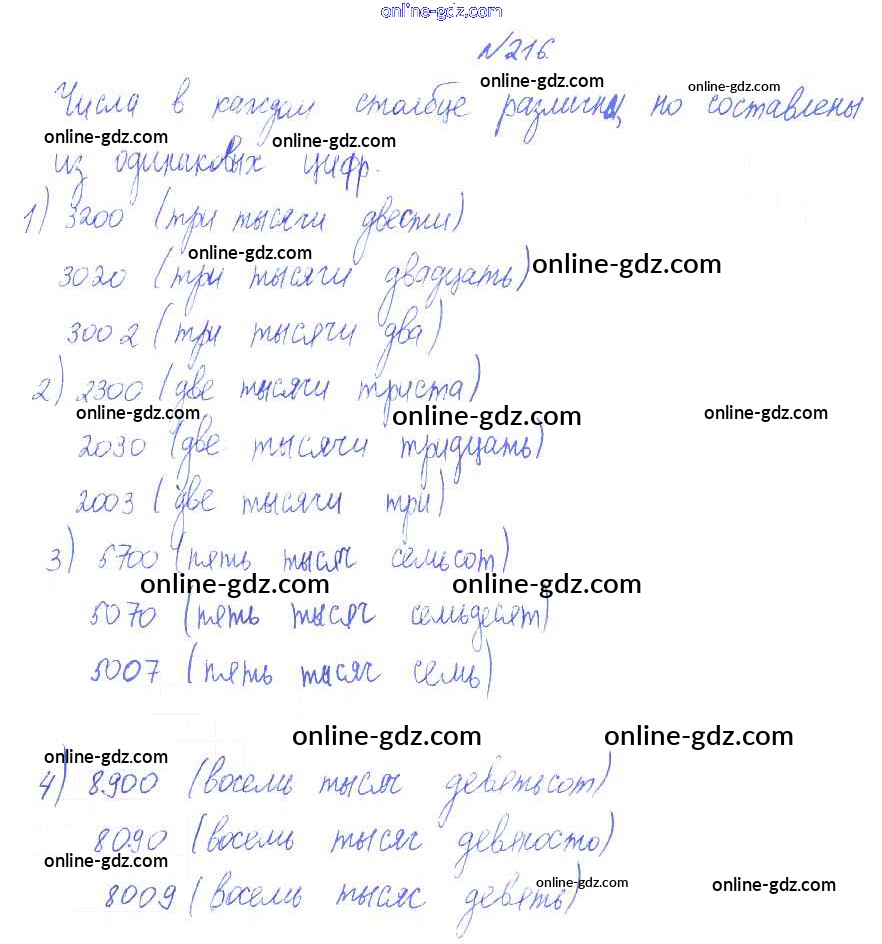 online-gdz.com
№216.
online-gdz.com online-gdz.com
Числа в каждом столбце различны, но составлены
online-gdz.com online-gdz.com
из одинаковых цифр.
1) 3200 (три тысячи двести)
online-gdz.com online-gdz.com
3020 (три тысячи двадцать)
3002 (три тысячи два)
2) 2300 (две тысячи триста)
online-gdz.com online-gdz.com online-gdz.com
2030 (две тысячи тридцать)
2003 (две тысячи три)
3) 5700 (пять тысяч семьсот)
online-gdz.com online-gdz.com
5070 (пять тысяч семьдесят)
5007 (пять тысяч семь)
online-gdz.com online-gdz.com
online-gdz.com
4) 8.900 (восемь тысяч девятьсот)
8090 (восемь тысяч девяносто)
online-gdz.com
8009 (восемь тысяс девять)
online-gdz.com online-gdz.com